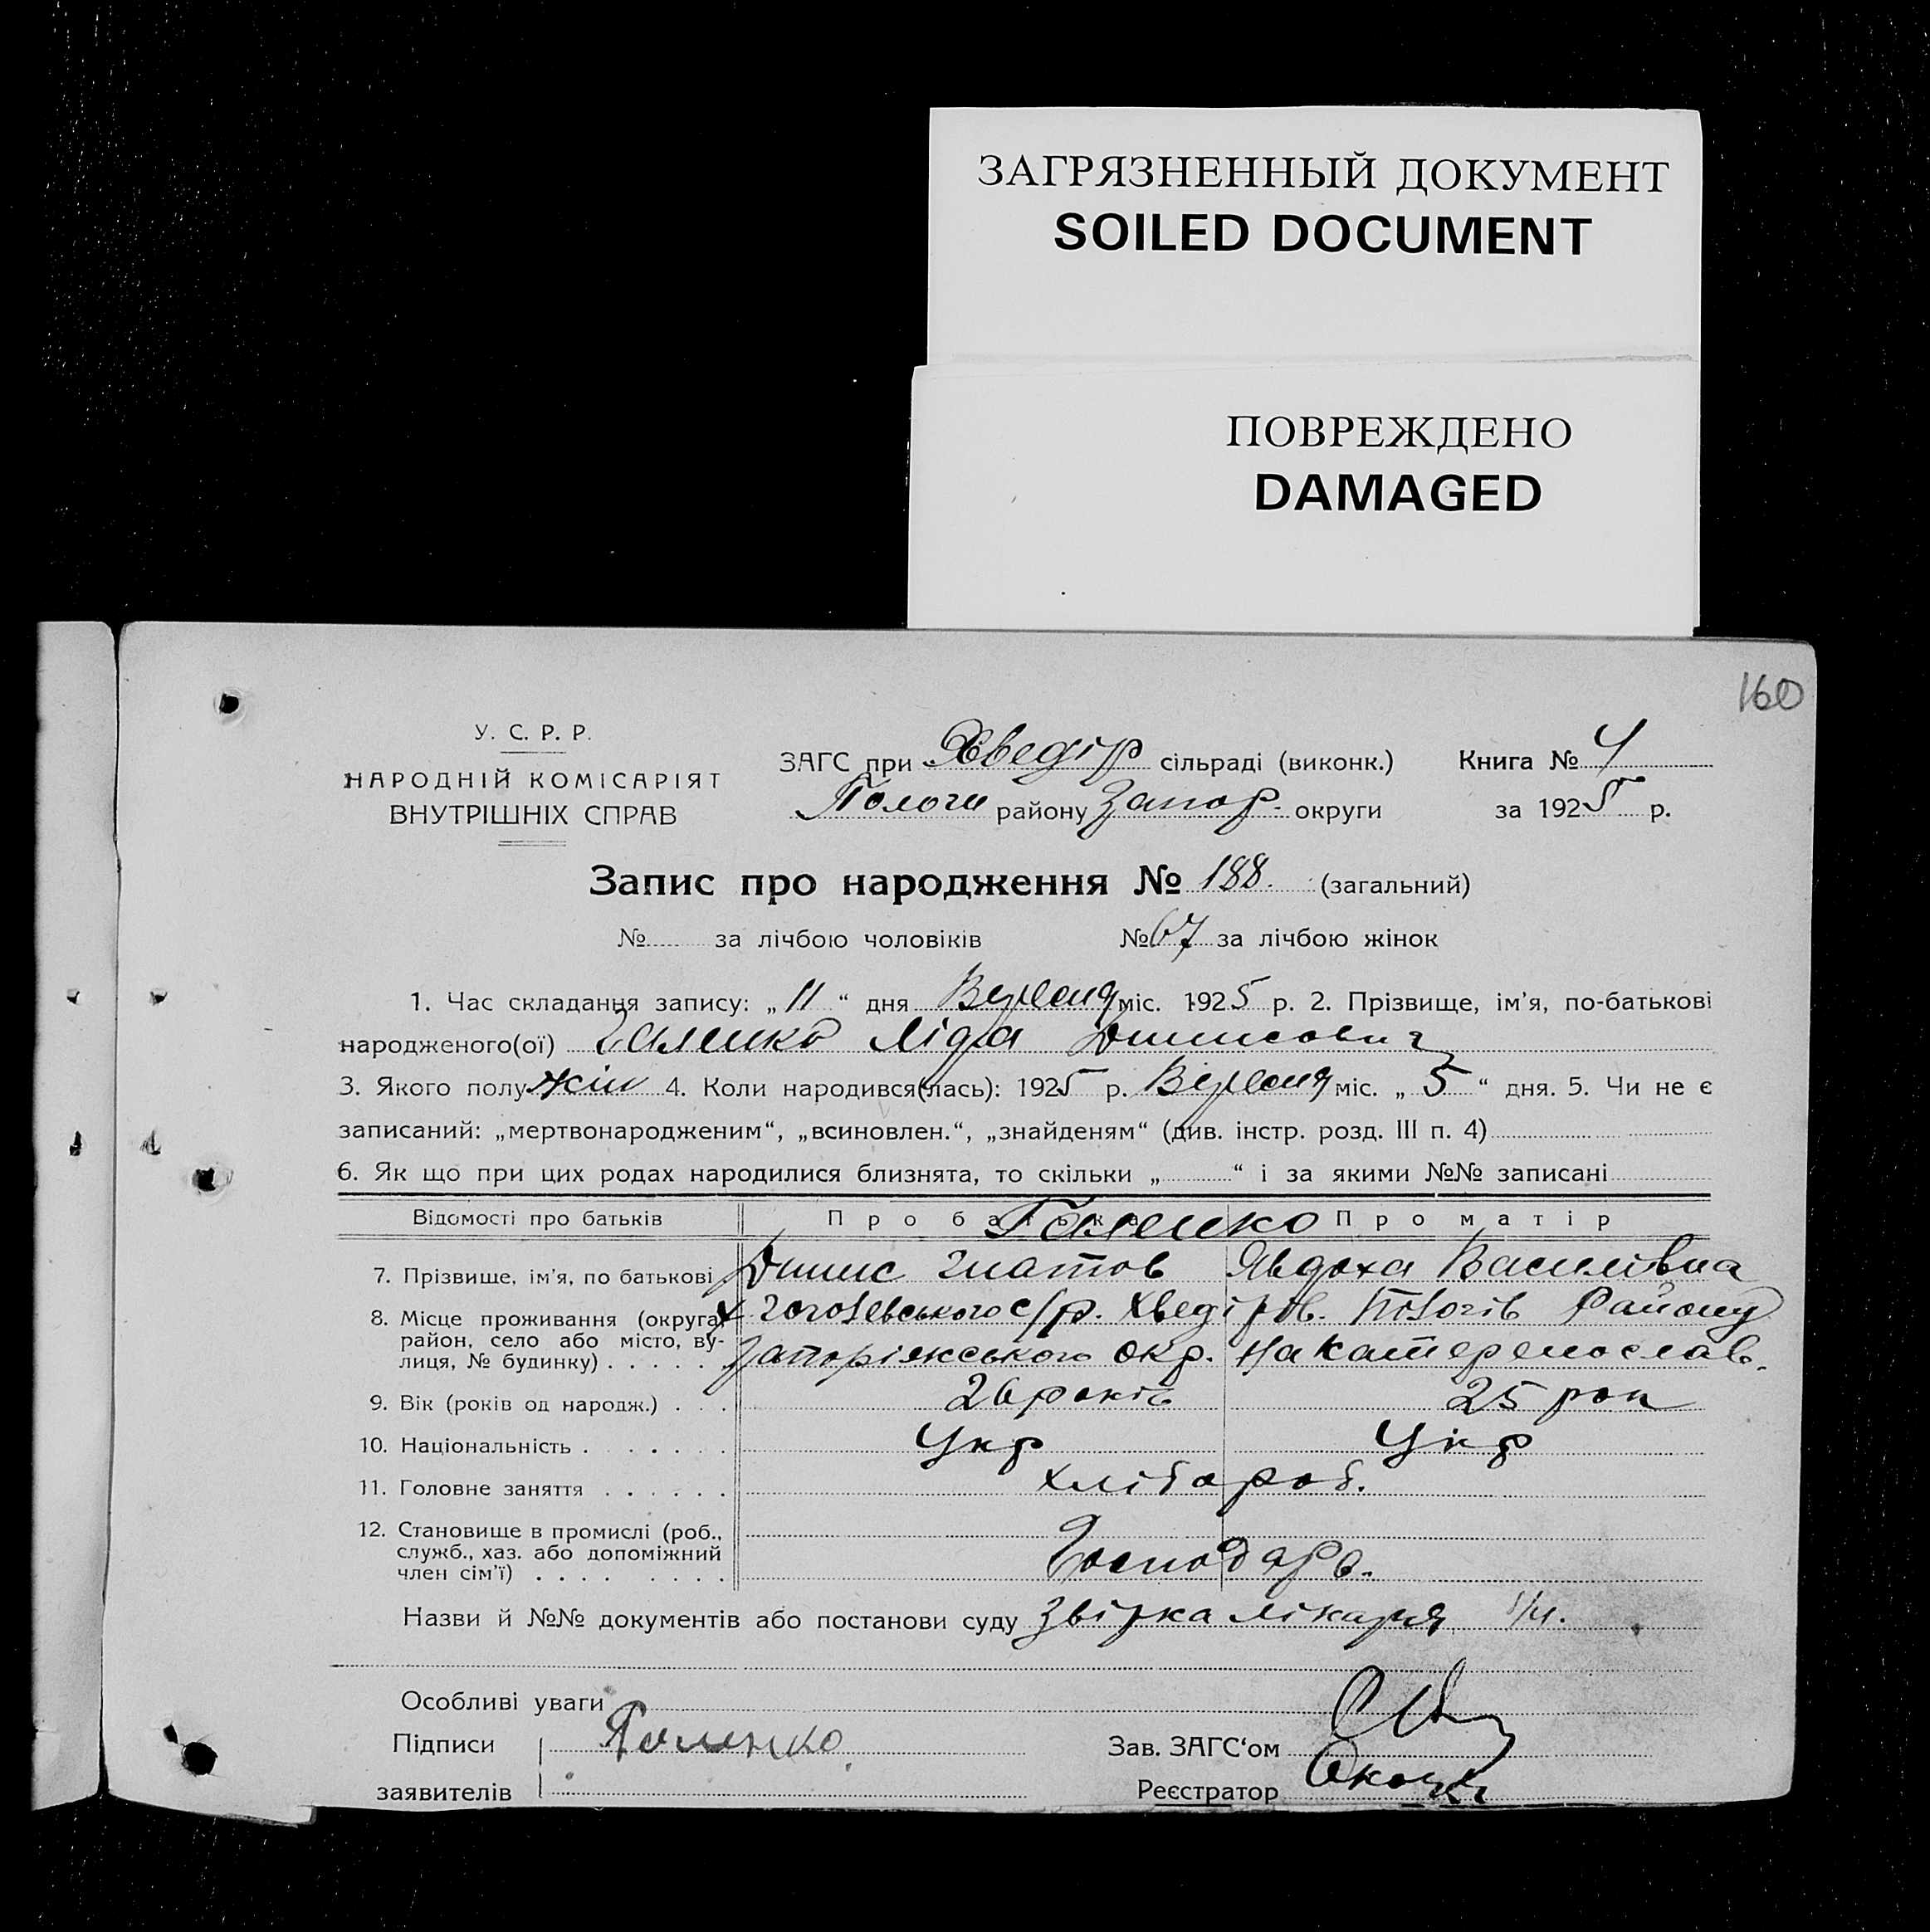 ЗАГРЯЗНЕННЫЙ ДОКУМЕНТ
SOILED DOCUMENT
ПОВРЕЖДЕНО
DAMAGED
160
У. С. Р. Р.
НАРОДНІЙ КОМІСАРІЯТ
ВНУТРІШНІХ СПРАВ
ЗАГС при Хведір сільраді (виконк.) Книга № 4
Пологи району Запор. округи за 1925 р.
Запис про народження № 188. (загальний)
№ за лічбою чоловіків № 67 за лічбою жінок
1. Час складання запису: „11“ дня Вересня міс. 1925 р. 2. Прізвище, ім'я, по-батькові
народженого(ої) Галенко Ліда Динисович
3. Якого полу жін 4. Коли народився(лась): 1925 р. Вересня міс. „5“ дня. 5. Чи не є
записаний: „мертвонародженим“, „всиновлен.“, „знайденям“ (див. інстр. розд. III п. 4)
6. Як що при цих родах народилися близнята, то скільки „ “ і за якими №№ записані
Відомості про батьків Про батька Галенко Про матір
7. Прізвище, ім'я, по батькові Динис Гнатов Явдоха Василівна
8. Місце проживання (округа, район, село або місто, вулиця, № будинку) х Гоголевського с/р. Хведіров. Пологів Району
Запоріжського окр. на Катеренослав.
9. Вік (років од народж.) 26 років 25 рок
10. Національність Укр Укр
11. Головне заняття хлібороб.
12. Становище в промислі (роб., служб., хаз. або допоміжний член сім'ї) Господарь.
Назви й №№ документів або постанови суду Звірка лікаря
Особливі уваги
Підписи Галенко
заявителів
Зав. ЗАГС'ом
Реєстратор